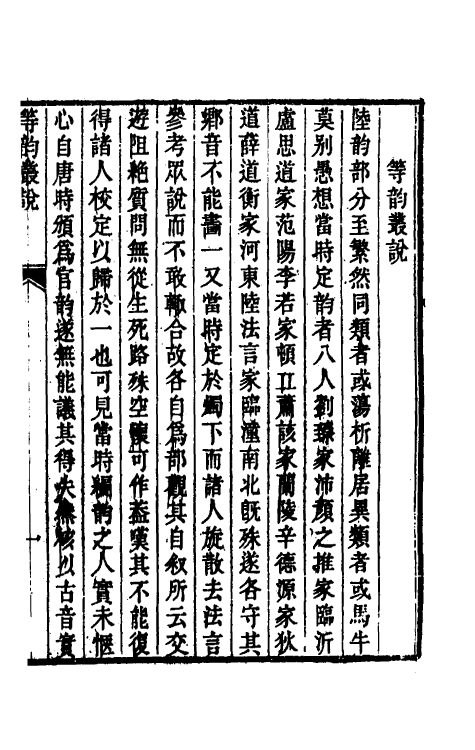 等韵叢說
陸韵部分至繁然同類者或蕩析離居異類者或馬牛
莫别愚想當時定韵者八人劉臻家沛顏之推家臨沂
盧思道家范陽李若家頓丘蕭該家蘭陵辛德源家狄
道薛道衡家河東陸法言家臨漳南北旣殊遂各守其
鄉音不能畫一又當時定於燭下而諸人旋散去法言
參考眾說而不敢輙合故各自爲部觀其自叙所云交
遊阻絶質問無從生死路殊空懷可作葢嘆其不能復
得諸人校定以歸於一也可見當時編韵之人實未愜
心自唐時頒爲官韵遂無能議其得失無該以古音實
等韵叢說
一